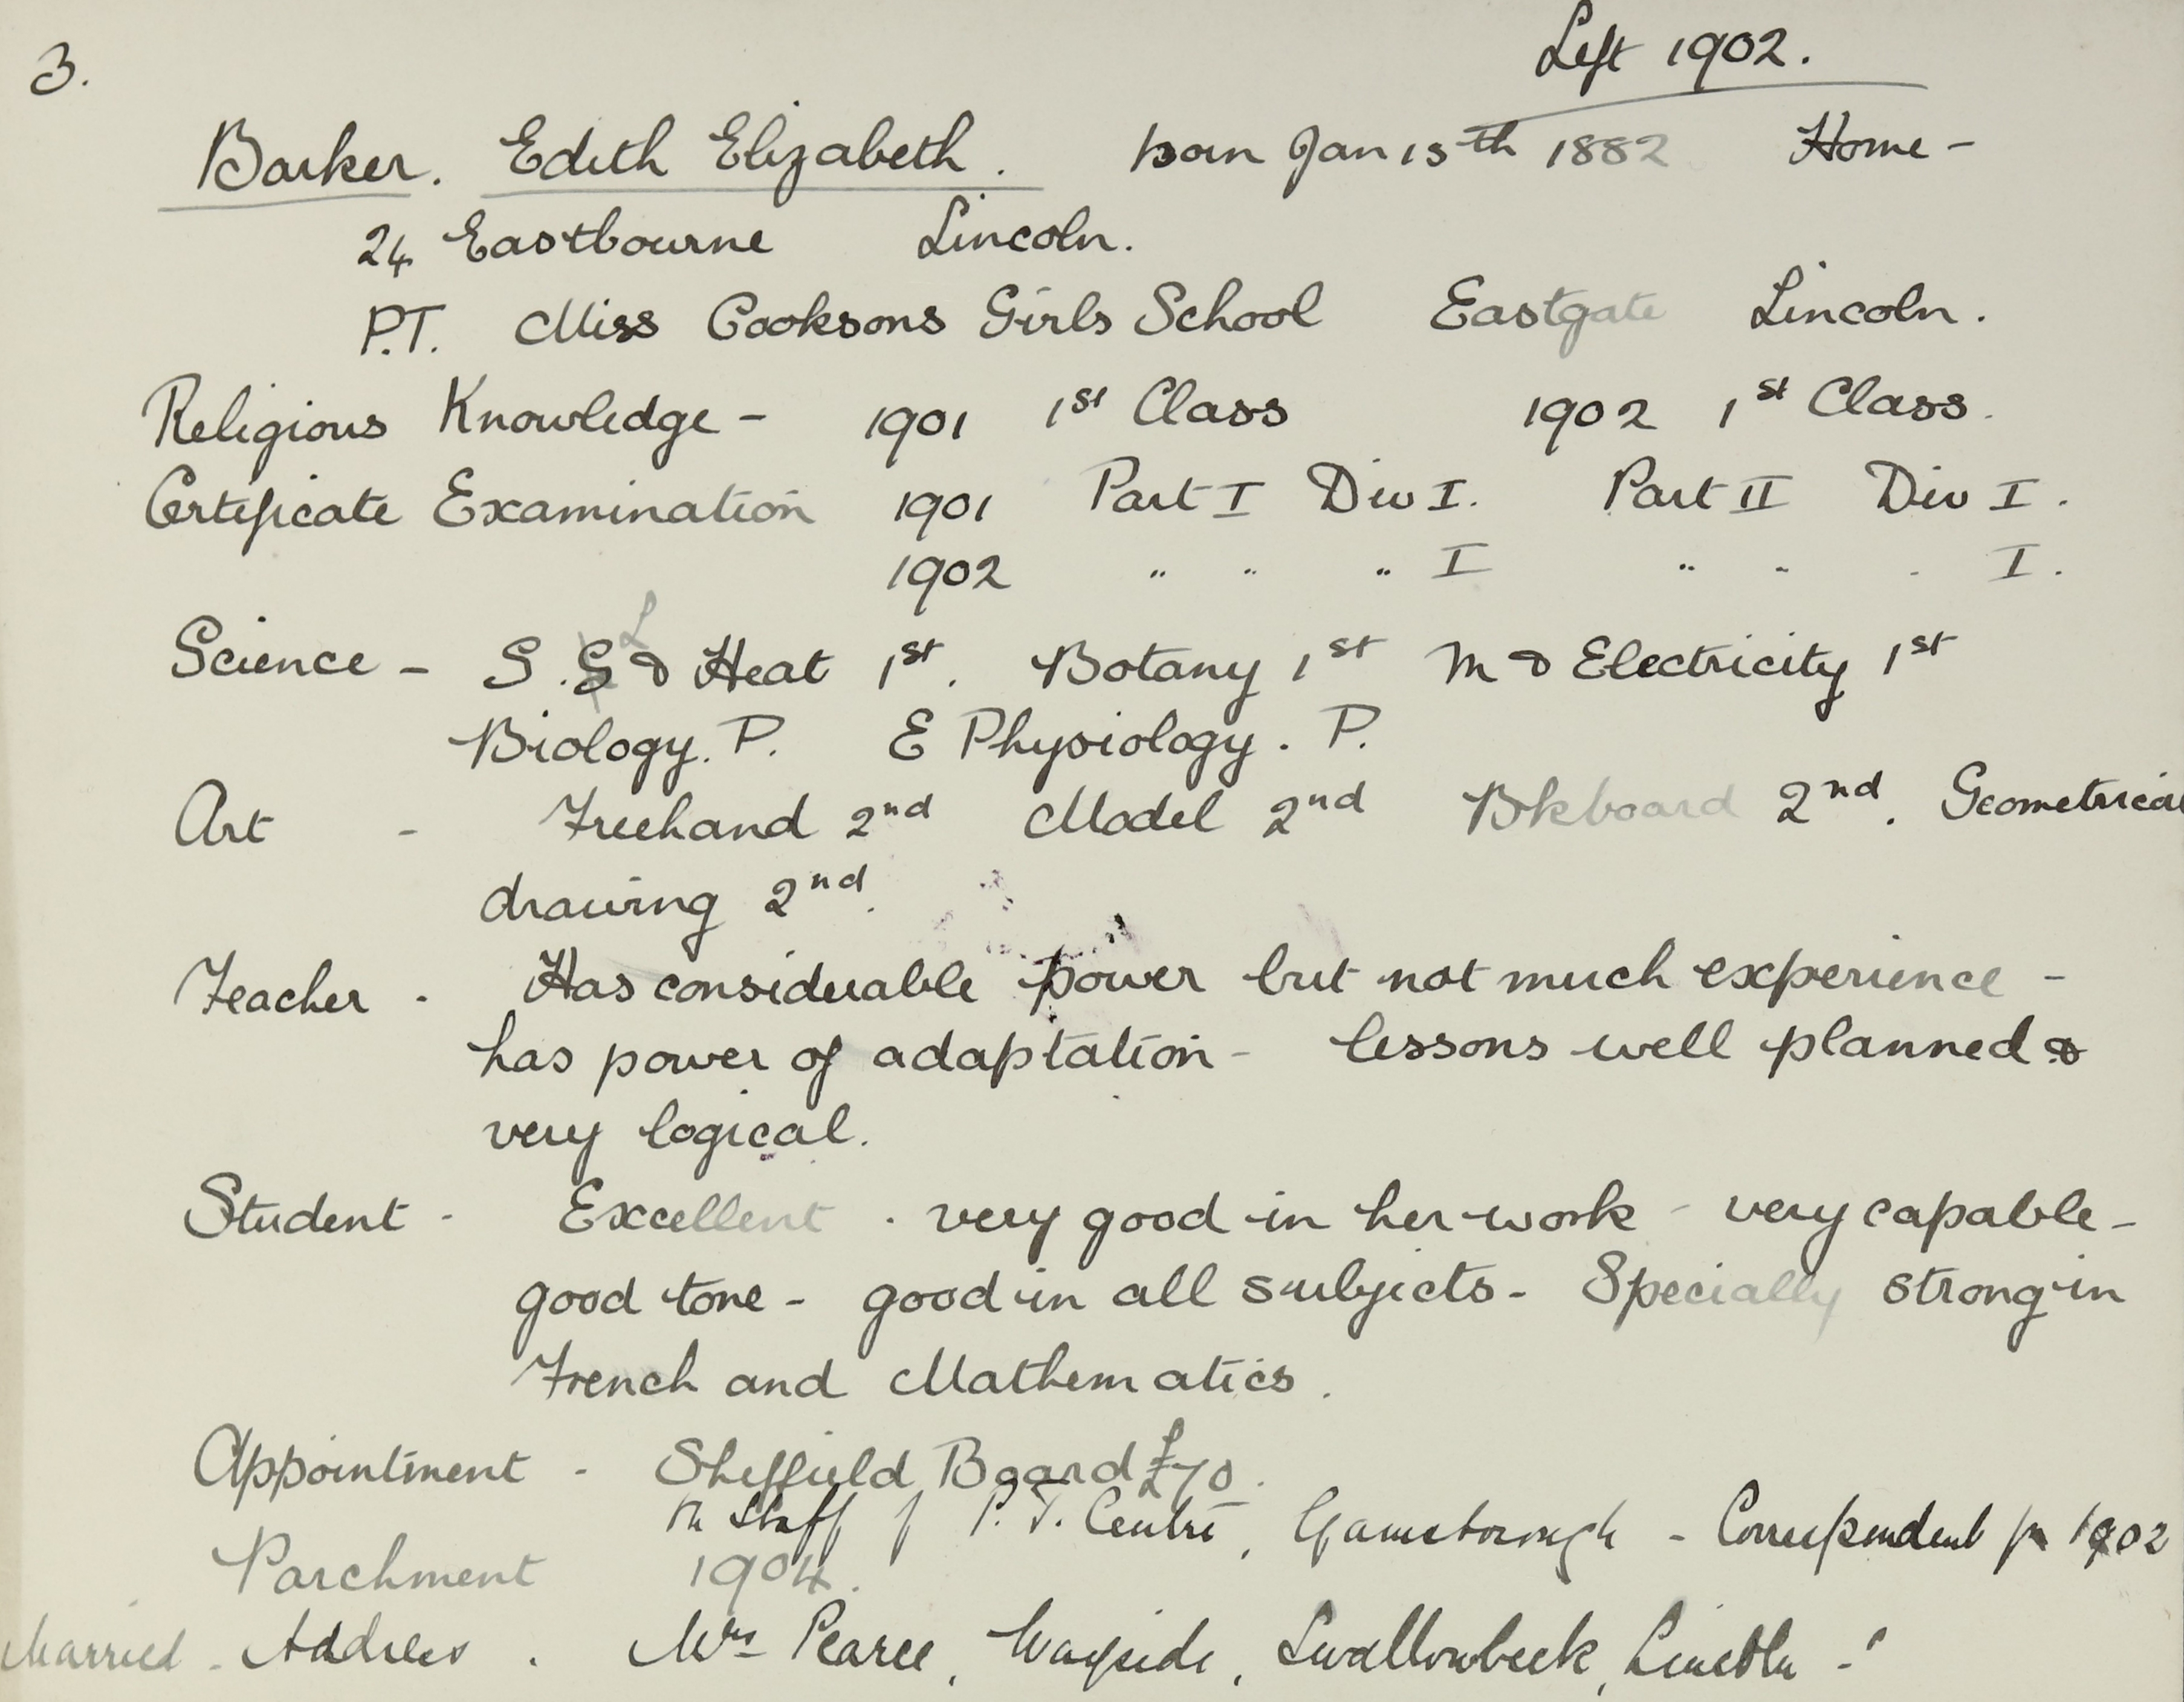 Left 1902.
3.
Barker. Edith Elizabeth. born Jan 15th 1882 Home -
24 Eastbourne Lincoln.
P.T. Miss Cooksons Girls School Eastgate Lincoln.
Religious Knowledge - 1901 1st Class 1902 1st Class.
Certificate Examination 1901 Part I Div I. Part II Div I.
1902 " " " I " " " I.
Science - S. L & Heat 1st. Botany 1st M & Electricity 1st
Biology. P. E Physiology. P.
Art - Freehand 2nd Model 2nd Bkboard 2nd. Geometrical
drawing 2nd.
Teacher - Has considerable power but not much experience -
has power of adaptation - lessons well planned &
very logical.
Student - Excellent. very good in her work - very capable -
good tone - good in all subjects - Specially strong in
French and Mathematics.
Appointment - Sheffield Board £70.
On Staff of P.T. Centre, Gainsborough - Correspondent for 1902
Parchment 1904.
Married - Address. Mrs Pearce, Wayside, Swallowbeck, Lincoln -